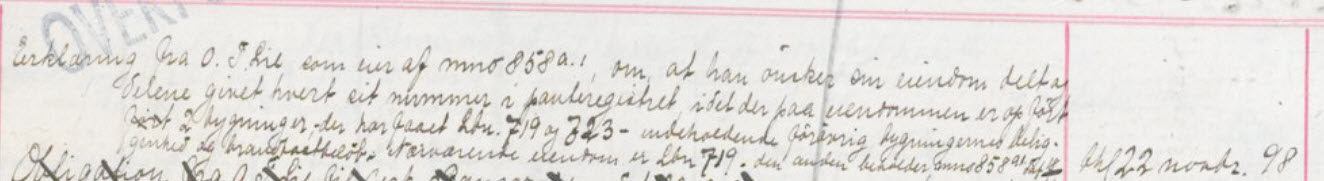 OVERF
Erklæring fra O. T. Lie som eier af mno 858a.1, om, at han önsker sin eiendom delt og
delene givet hvert sit nummer i panteregistret idet der paa eiendommen er opført
2 bygninger - der har faaet Lbn. 719 og 723 - indeholdende förövrig bygningernes belig-
genhed og Nærværende eiendom er Lbn 719. den anden mno 858a1
22 novbr. 98
Obligation fra O. T. Lie til